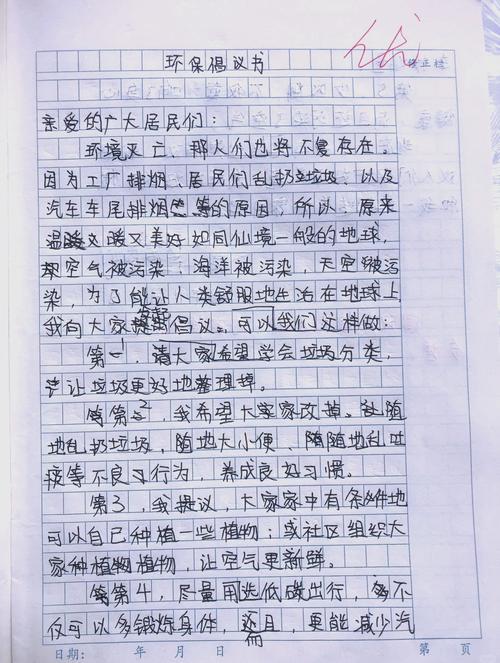 优
环保倡议书
校正栏
亲爱的广大居民们：
环境灭亡、那人们也将不复存在。
因为工厂排烟、居民们乱扔垃圾、以及
汽车车尾排烟等的原因，所以，原来
温暖又美好如同仙境一般的地球，
空气被污染，海洋被污染，天空被污
染，为了能让人类舒服地生活在地球上
我向大家提出倡议，可以我们这样做：
第一，请大家希望学会垃圾分类，
让垃圾更好地整理掉。
第2，我希望大家改掉随
地乱扔垃圾，随地大小便、随地乱吐
痰等不良习行为，养成良好习惯。
第3，我提议，大家家中有条件地
可以自己种植一些植物；或社区组织大
家种植物植物，让空气更新鲜。
第4，尽量用选低碳出行，不
仅可以多锻炼身体，而且，更能减少汽
日期： 年 月 日 第 页